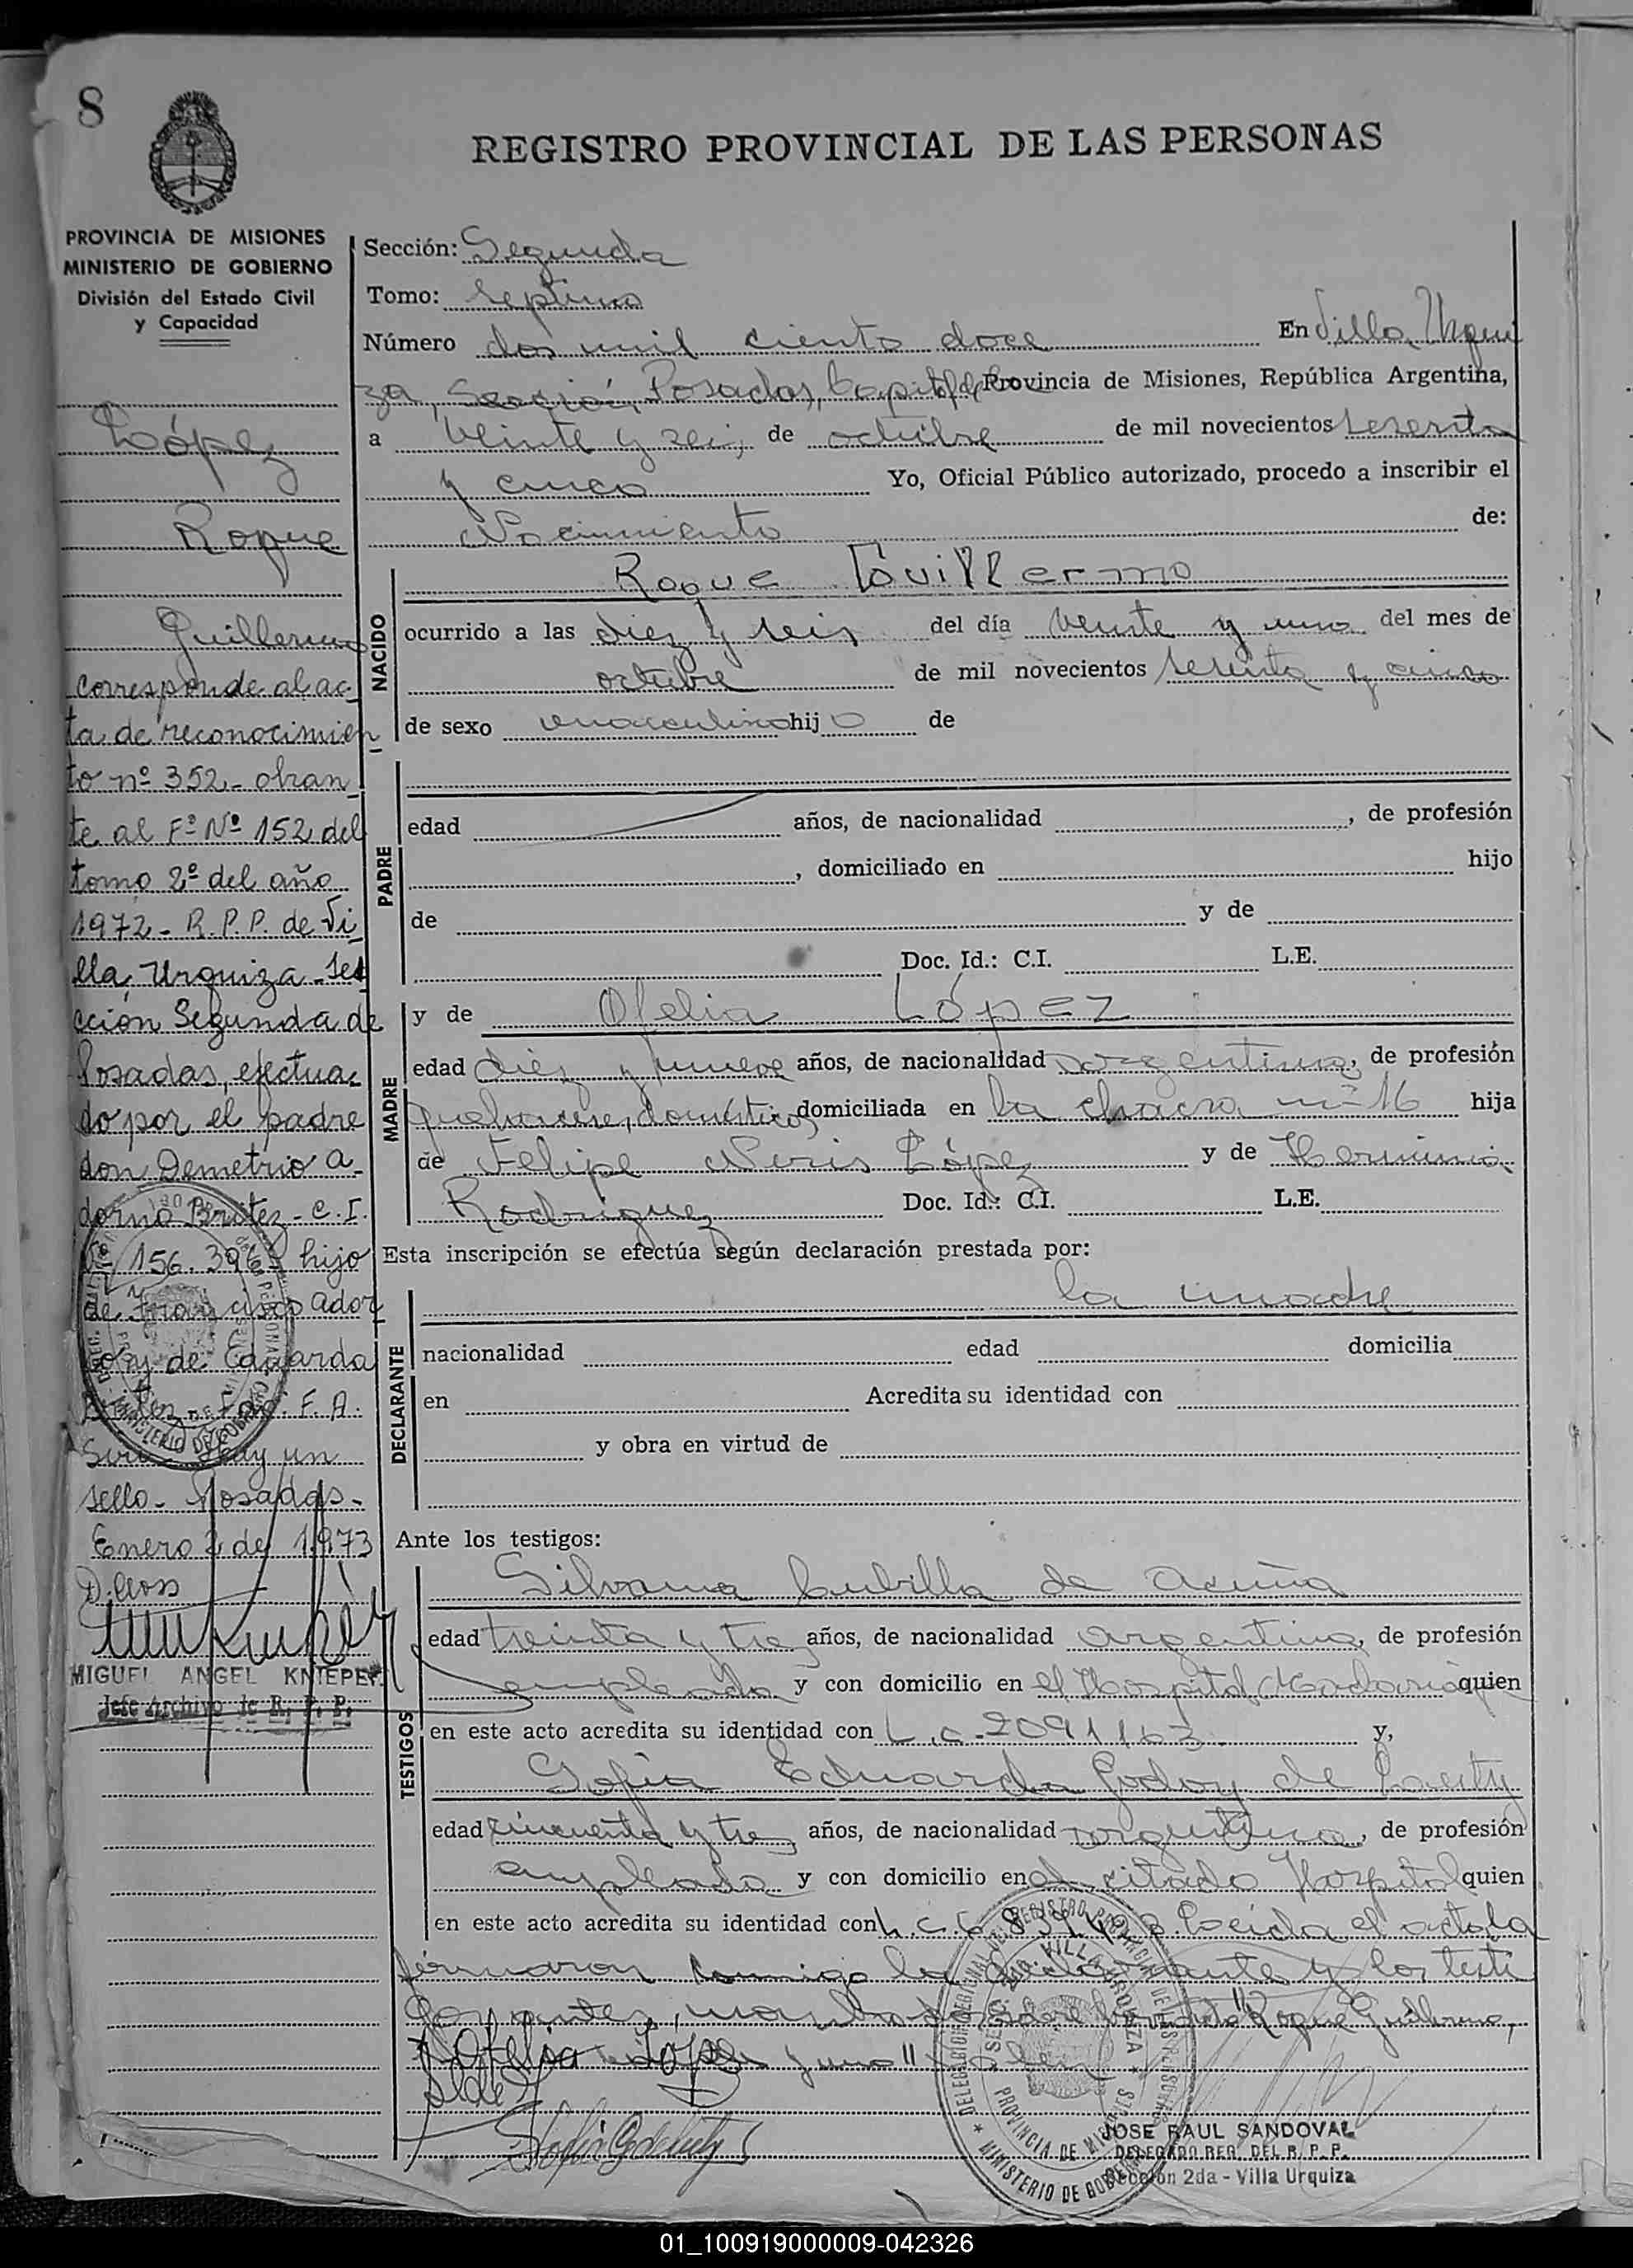 8
REGISTRO PROVINCIAL DE LAS PERSONAS
PROVINCIA DE MISIONES
MINISTERIO DE GOBIERNO
División del Estado Civil
y Capacidad
López
Roque
Guillermo
corresponde al ac-
ta de reconocimien
to nº 352 - obran_
te al Fº Nº 152 del
tomo 2º del año
1972 - R. P. P. de Vi_
lla Urquiza - Sec
cción Segunda de
Posadas, efectua_
do por el padre
don Demetrio A_
dorno Britez - C. I.
Nº 156.396 hijo
de Francisco Ador_
no y de Eduarda
Britez - Fdo. F. A.
Hay un
sello - Posadas -
Enero 2 de 1973
MIGUEL ANGEL KNIEPER
Jefe Archivo de R. P. P.
Sección: Segunda
Tomo: Septimo
Número dos mil ciento doce En Villa Urqui
za, Sección, Posadas, Capital de Provincia de Misiones, República Argentina,
a veinte y seis de octubre de mil novecientos sesenta
y cinco Yo, Oficial Público autorizado, procedo a inscribir el
Nacimiento de:
NACIDO
Roque Guillermo
ocurrido a las diez y seis del día veinte y uno del mes de
octubre de mil novecientos sesenta y cinco
de sexo masculino hijo de
PADRE
edad años, de nacionalidad , de profesión
, domiciliado en hijo
de y de
Doc. Id.: C.I. L.E.
MADRE
y de Ofelia López
edad diez y nueve años, de nacionalidad argentina, de profesión
quehaceres domésticos domiciliada en la chacra nº 16 hija
de Felipe Neris López y de Herminia
Rodriguez Doc. Id.: C.I. L.E.
Esta inscripción se efectúa según declaración prestada por:
DECLARANTE
la madre
nacionalidad edad domicilia
en Acredita su identidad con
y obra en virtud de
Ante los testigos:
TESTIGOS
Silvana Cubilla de Acuña
edad treinta y tres años, de nacionalidad argentina, de profesión
empleada y con domicilio en el Hospital Madariaga quien
en este acto acredita su identidad con L.C. 2091163 y,
Sofia Eduarda Godoy de
edad cincuenta y tres años, de nacionalidad argentina, de profesión
empleada y con domicilio en el citado Hospital quien
en este acto acredita su identidad con L.C. Leida el acta la
firmaron conmigo la declarante y los testi
gos Roque Guillermo,
Ofelia López
DELEGACION REGIONAL DEL REGISTRO PROVINCIAL DE LAS PERSONAS
SECC. 2da. VILLA URQUIZA
PROVINCIA DE MISIONES
MINISTERIO DE GOBIERNO
JOSE RAUL SANDOVAL
DELEGADO REG. DEL R. P. P.
Sección 2da - Villa Urquiza
01_100919000009-042326